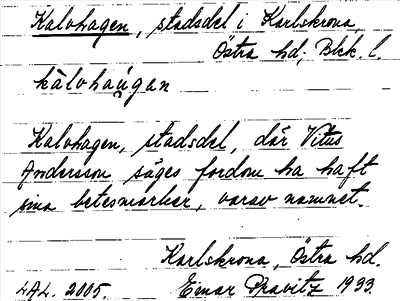 Kalvhagen, stadsdel i Karlskrona,
Östra hd; Blek. l.
kàlvhaugan
Kalvhagen, stadsdel, där Vitus
Andersson säges fordom ha haft
sina betesmarker, varav namnet.
Karlskrona, Östra hd.
2005. Einar Pravitz 1933.